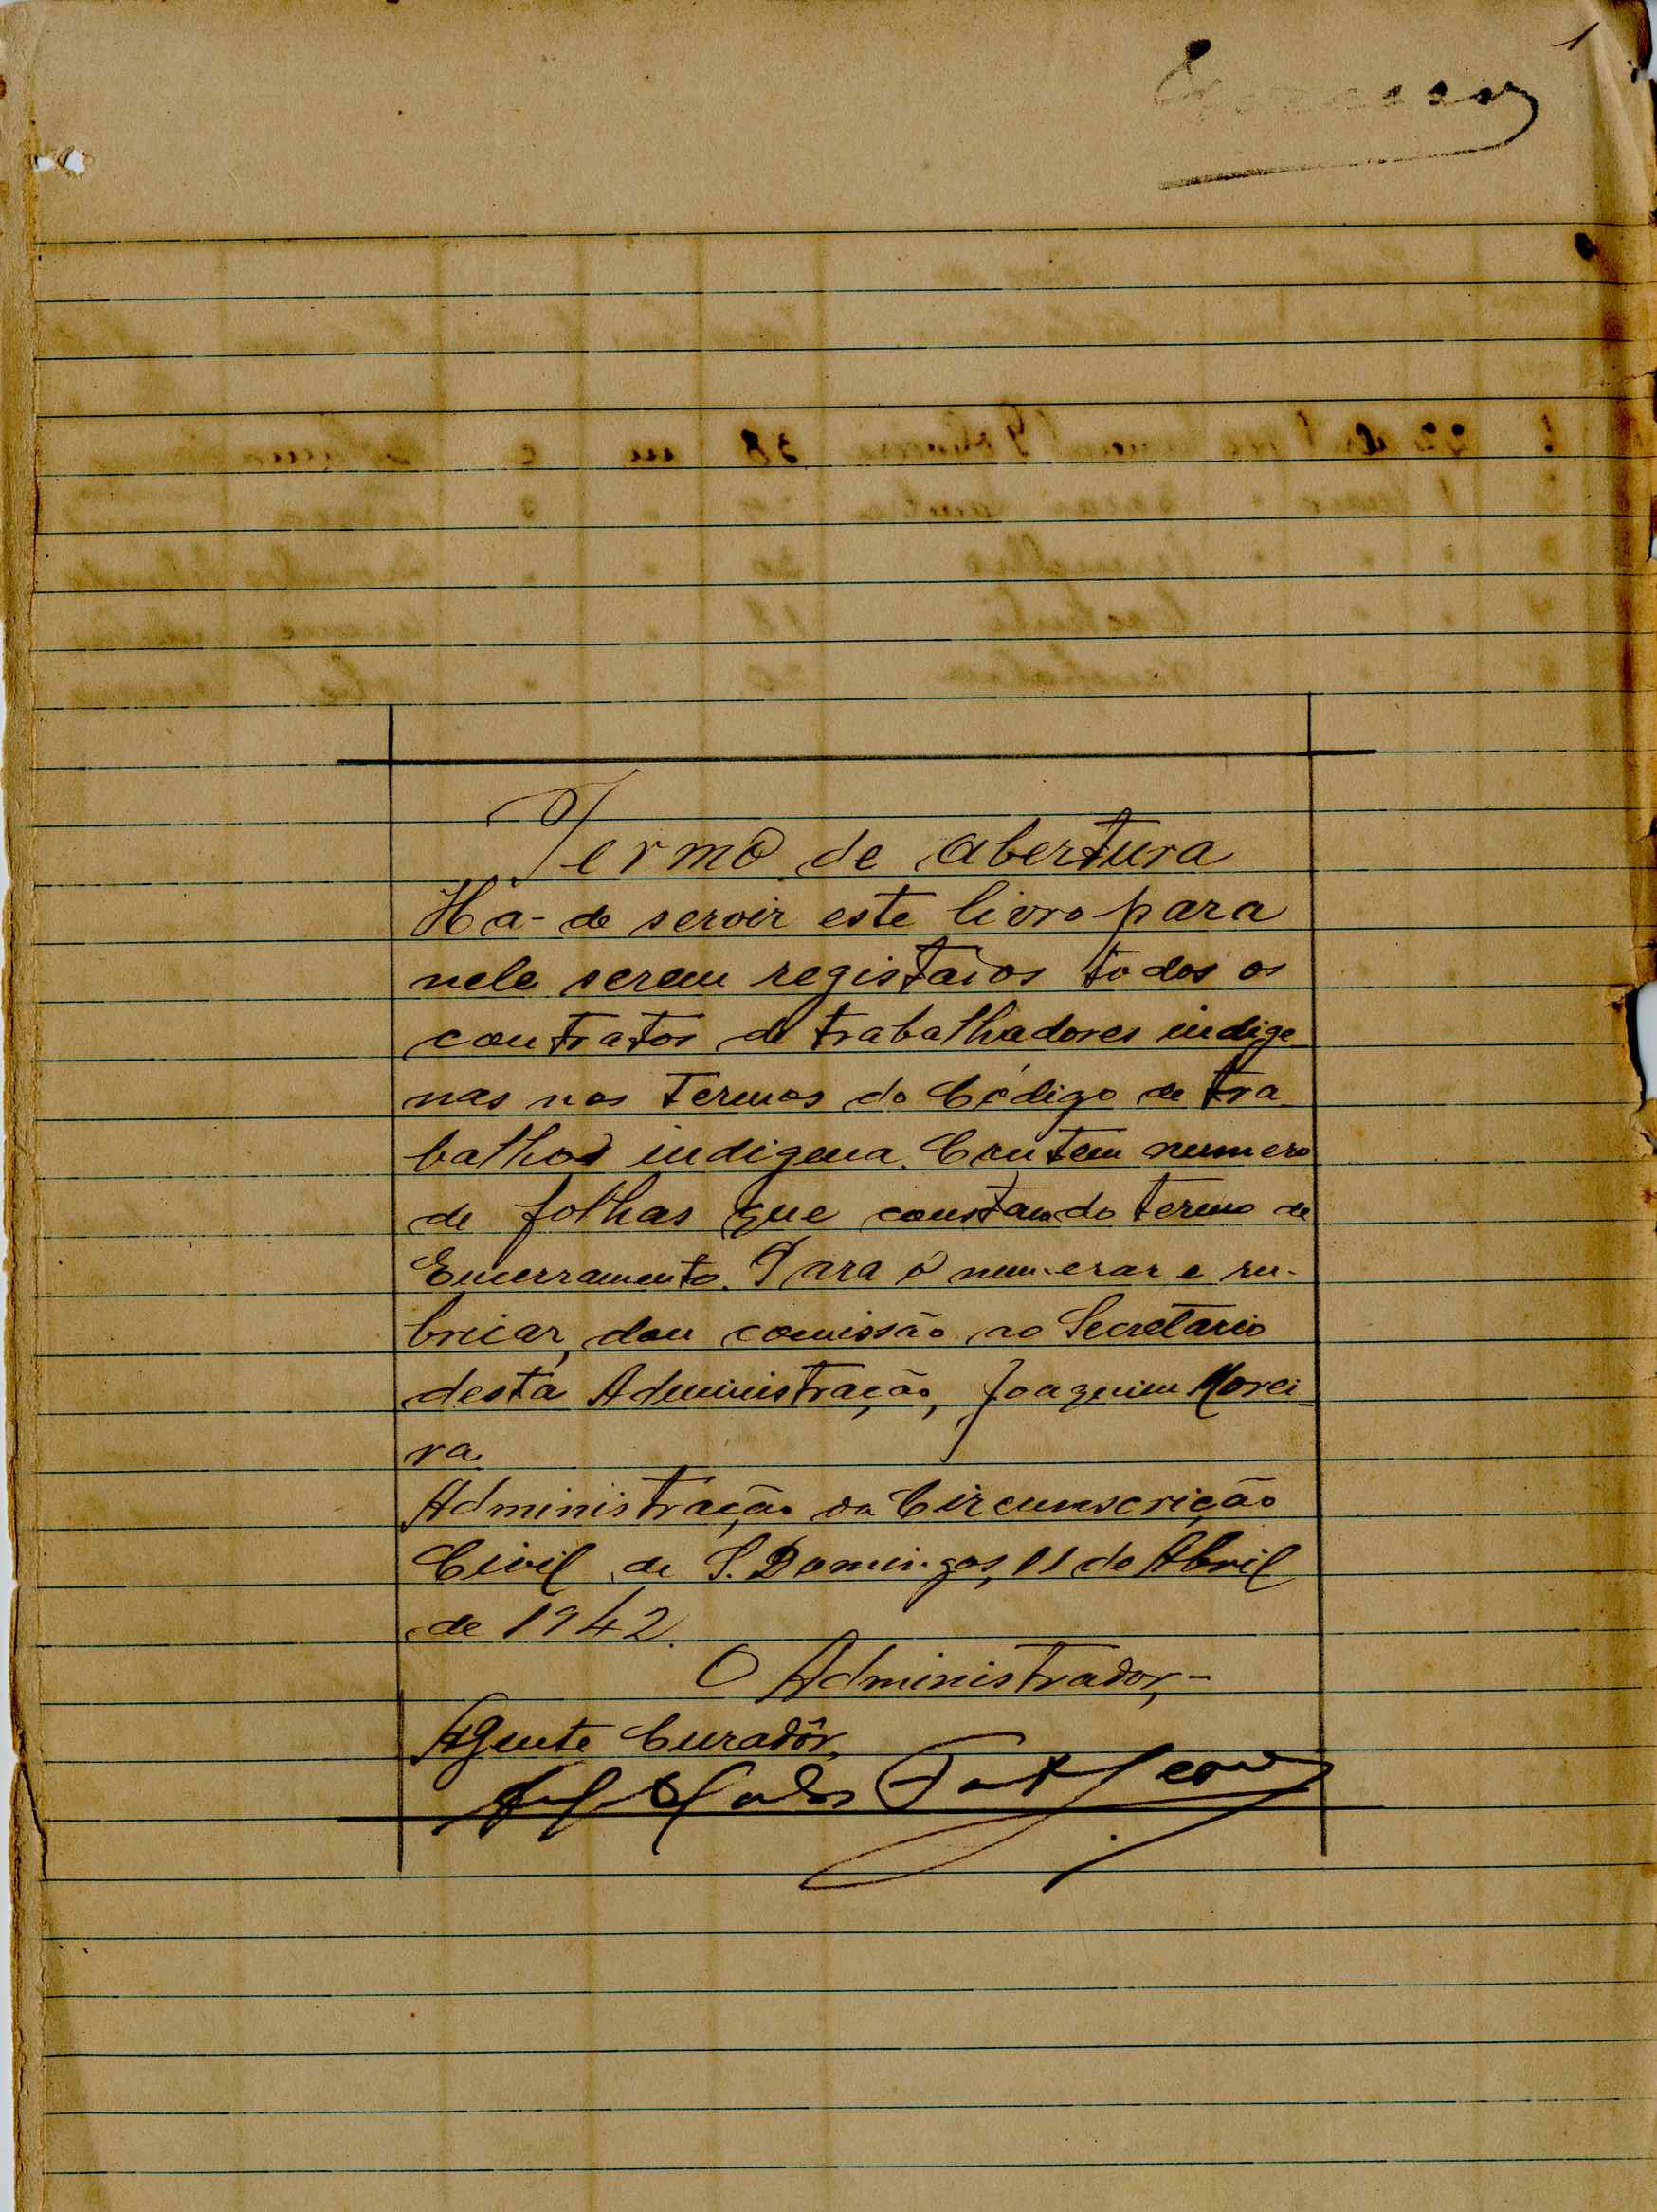 1
Termo de abertura
Ha-de servir este livro para
nele serem registados todos os
contratos de trabalhadores indige
nas nos termos do Código de tra
balhos indigena. Contem numero
de folhas que constam do termo de
Encerramento. Para o numerar e ru-
bricar, dou comissão ao Secretario
desta Administração, Joaquim Morei
ra
Administração da Circumscrição
Civil de S. Domingos, 11 de Abril
de 1942.
O Administrador,-
Agente Curadôr,